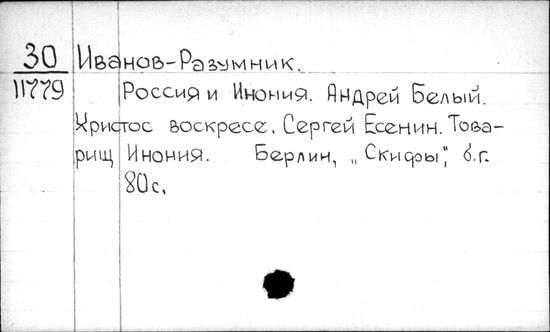 30 Иванов-Разумник.
11779 Россия и Инония. Андрей Белый.
Христос воскресе. Сергей Есенин. Това-
рищ Инония. Берлин, „Скифы", б.г.
80с.